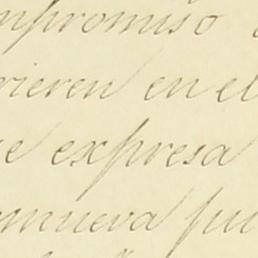 mpromiso
rieren en el
se expresa
nmueva pu